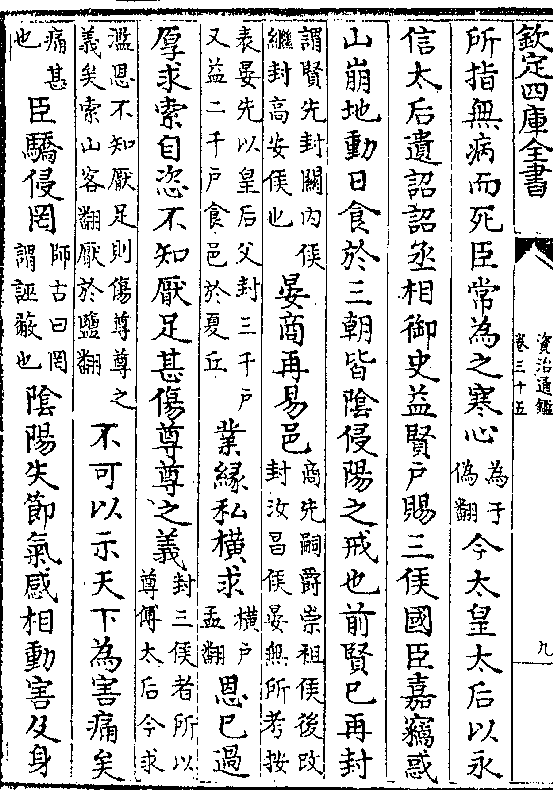 欽定四庫全書
資治通鑑
卷三十五
九
所指無病而死臣常為之寒心
為于
偽翻
今太皇太后以永
信太后遺詔詔丞相御史益賢戶賜三侯國臣嘉竊惑
山崩地動日食於三朝皆陰侵陽之戒也前賢已再封
謂賢先封關內侯
繼封高安侯也
晏商再易邑
商先嗣爵崇祖侯後改
封汝昌侯晏無所考按
表晏先以皇后父封三千戶
又益二千戶食邑於夏丘
業緣私橫求
橫戶
孟翻
恩已過
厚求索自恣不知厭足甚傷尊尊之義
封三侯者所以
尊傅太后今求
濫恩不知厭足則傷尊尊之
義矣索山客翻厭於鹽翻
不可以示天下為害痛矣
痛甚
也
臣驕侵罔
師古曰罔
謂誣蔽也
陰陽失節氣感相動害及身